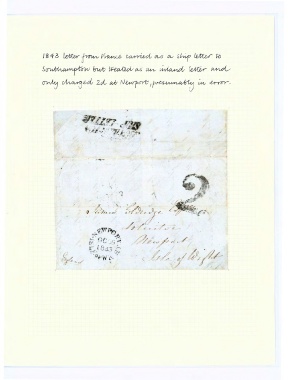 1843 letter from France carried as a ship letter to
Southampton but treated as an inland letter and
only charged 2d at Newport, presumably in error.
2
Solicitor
Newport
Isle of Wight